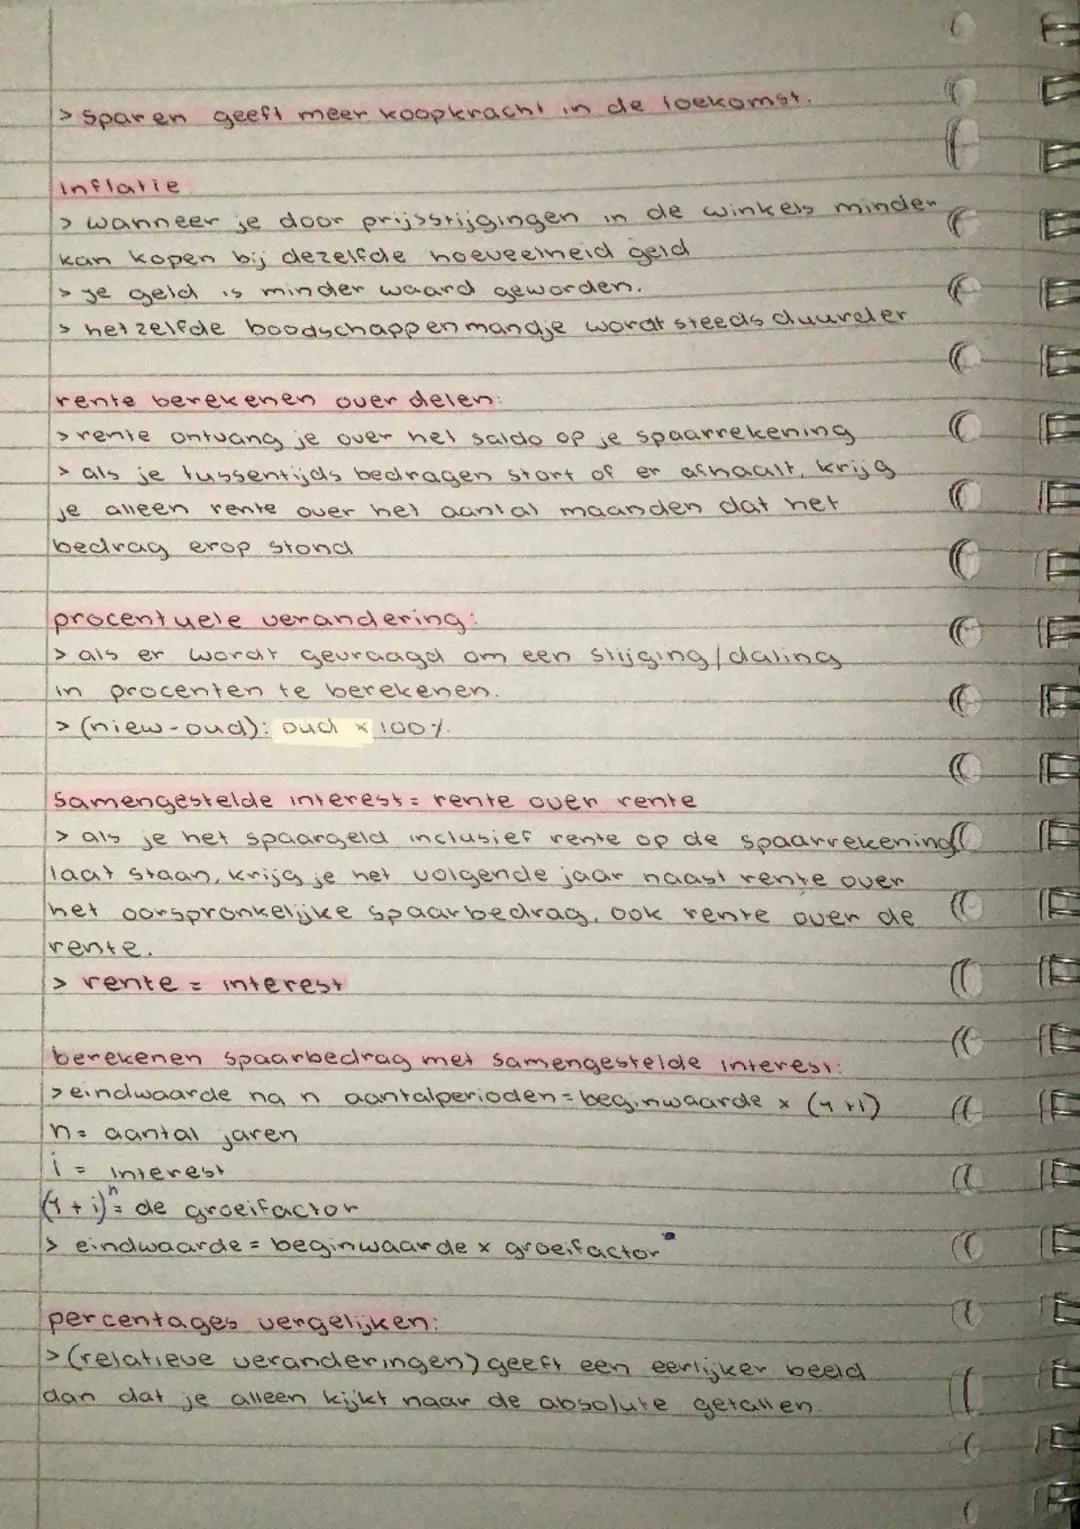 > Sparen geeft meer koopkracht in de toekomst.
inflatie
> wanneer je door prijsstijgingen in de winkels minder
kan kopen bij dezelfde hoeveelheid geld
> je geld is minder waard geworden.
> hetzelfde boodschappenmandje wordt steeds duurder
rente berekenen over delen:
> rente ontvang je over het saldo op je spaarrekening
> als je tussentijds bedragen stort of er afhaalt, krijg
je alleen rente over het aantal maanden dat het
bedrag erop stond
procentuele verandering:
> als er wordt gevraagd om een stijging/daling
in procenten te berekenen.
> (niew-oud): oud x 100%.
Samengestelde interest = rente over rente
> als je het spaargeld inclusief rente op de spaarrekening
laat staan, krijg je het volgende jaar naast rente over
het oorspronkelijke spaarbedrag, ook rente over de
rente.
> rente = interest
berekenen spaarbedrag met samengestelde interest:
> eindwaarde na n aantalperioden = beginwaarde x (1+i)
n = aantal jaren
i = interest
(1+i)ⁿ = de groeifactor
> eindwaarde = beginwaarde x groeifactor
percentages vergelijken:
> (relatieve veranderingen) geeft een eerlijker beeld
dan dat je alleen kijkt naar de absolute getallen.